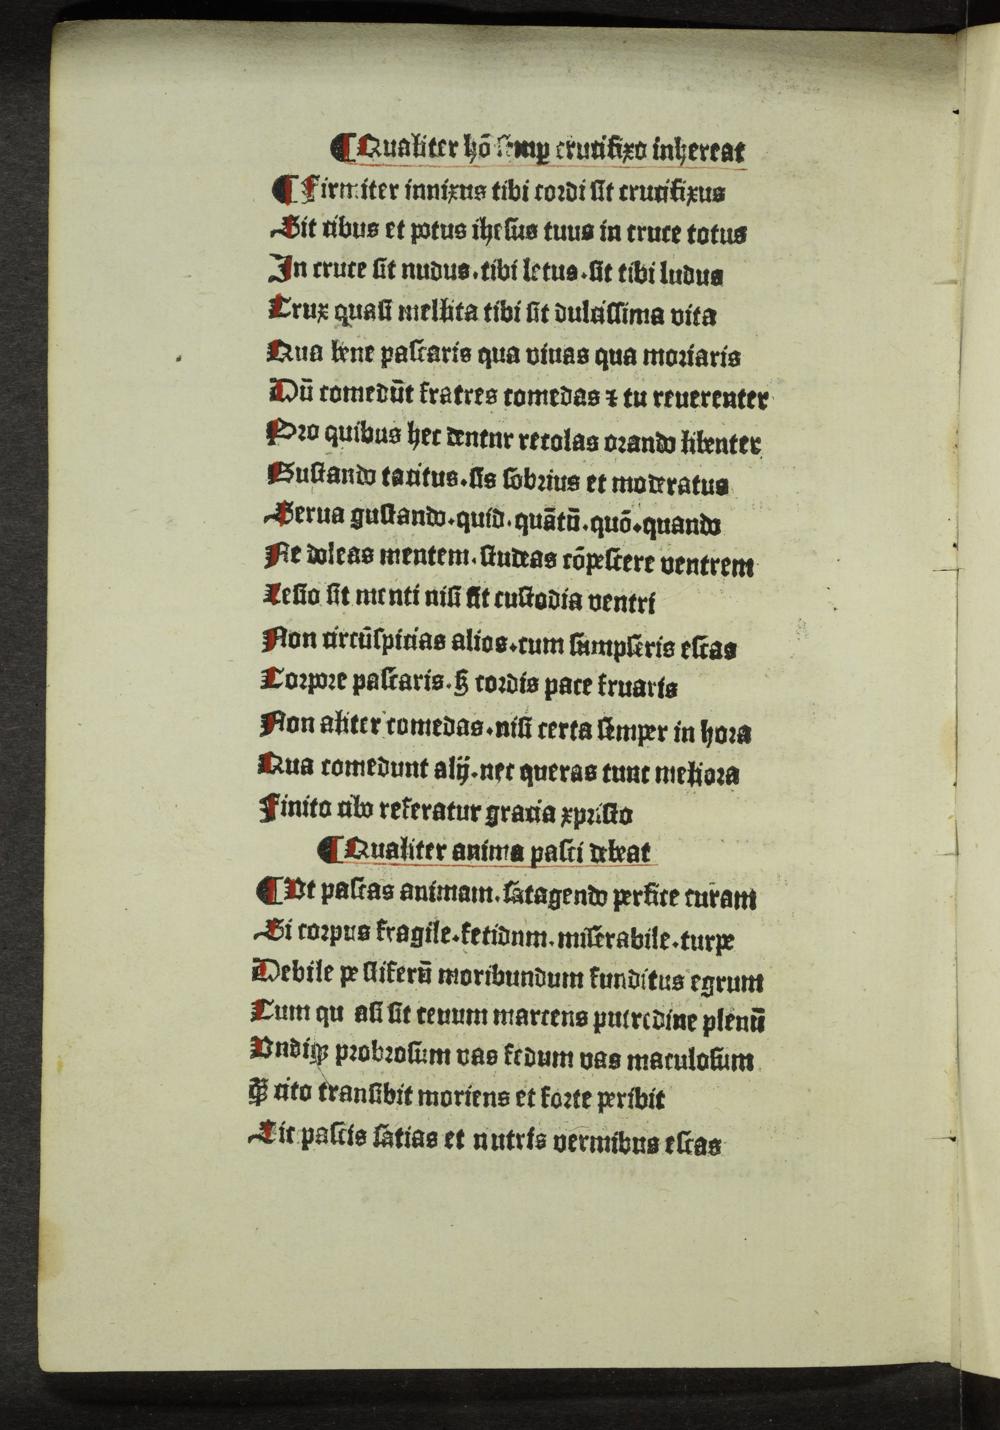 ¶ Qualiter hō semꝑ crucifixo inhereat
¶ Firmiter innixus tibi cordi sit crucifixus
Sit cibus et potus ihesus tuus in cruce totus
In cruce sit nudus. tibi letus. sit tibi ludus
Crux quasi mellita tibi sit dulcissima vita
Qua bene pascaris qua viuas qua moriaris
Dū comedūt fratres comedas ⁊ tu reuerenter
Pro quibus hec dentur recolas orando libenter
Gustando tacitus. sis sobrius et moderatus
Serua gustando. quid. quātū. quō. quando
Ne doleas mentem. studeas cōpescere ventrem
Lesio fit menti nisi sit custodia ventri
Non circūspicias alios. cum sumpseris escas
Corpore pascaris. ꝫ cordis pace fruaris
Non aliter comedas. nisi certa semper in hora
Qua comedunt alij. nec queras tunc meliora
Finito cibo referatur gracia xpristo
¶ Qualiter anima pasci debeat
¶ Vt pascas animam. satagendo perfice curam
Si corpus fragile. fetidum. miserabile. turpe
Debile pe stiferū moribundum funditus egrum
Cum qu asi sit cenum marcens putredine plenū
Vndiqꝫ probrosum vas fedum vas maculosum
Qꝫ cito transibit moriens et forte peribit
Sic pascis satias et nutris vermibus escas